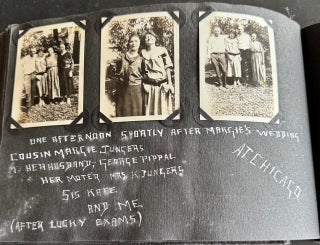 ONE AFTERNOON SHORTLY AFTER MARGIE'S WEDDING
COUSIN MARGIE JUNGERS
& HER HUSBAND, GEORGE PIPPAL
& HER MOTER MRS K JUNGERS
SIS KATE
AND ME
(AFTER LUCKY EXAMS)
AT CHICAGO